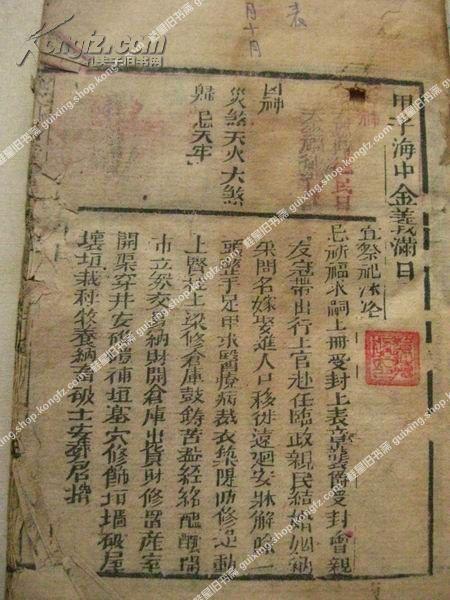 表
月十月
甲子海中金義滿日
民日
凶神
災煞天火大煞
歸忌天牢
宜祭祀沐浴
忌祈福求嗣上冊受封上表章襲爵受封會親
友冠帶出行上官赴任臨政親民結婚姻納
采問名嫁娶進人口移徙遠迴安牀解除
頭整手足甲求醫療病裁衣築隄防修造動
土豎柱上梁修倉庫鼓鑄苫蓋經絡醞釀開
市立券交易納財開倉庫出貨財修置產室
開渠穿井安碓磑補垣塞穴修飾垣墻破屋
壞垣栽種牧養納畜破土安葬啓攢
Kongfz.com
孔夫子旧书网
桂星旧书斋 guixing.shop.kongfz.com